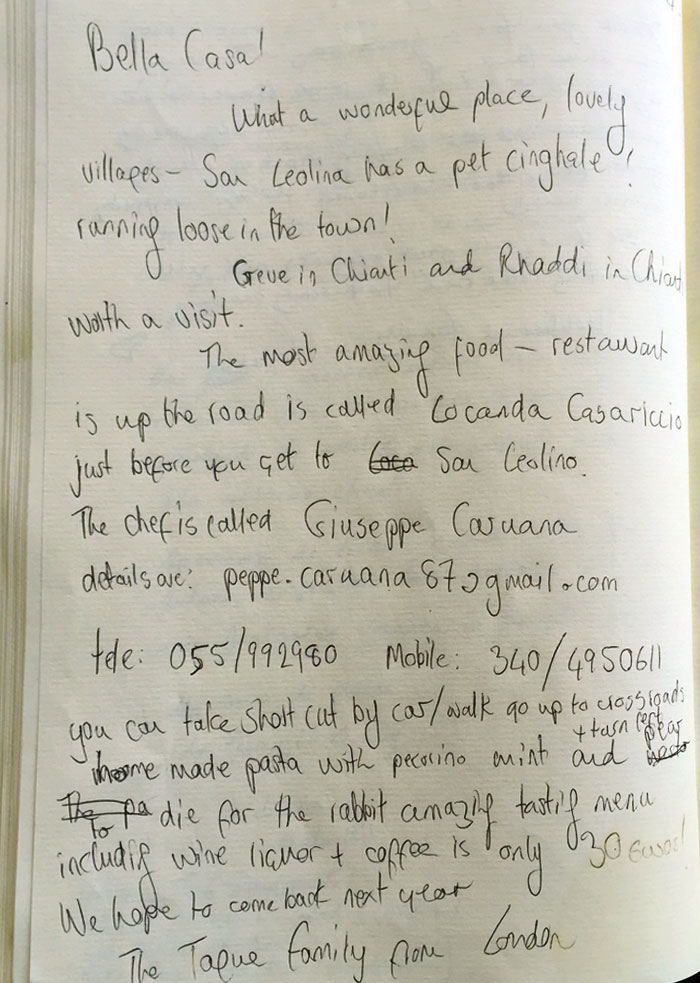 Bella Casa!
What a wonderful place, lovely
villages - San Leolina has a pet cinghale!
running loose in the town!
Greve in Chianti and Rhaddi in Chianti
worth a visit.
The most amazing food - restaurant
is up the road is called Locanda Casariccio
just before you get to San Leolino.
The chef is called Giuseppe Caruana
details are: peppe.caruana87@gmail.com
tele: 055/992980 Mobile: 340/4950611
you can take short cut by car/walk go up to crossroads
+ turn left
home made pasta with pecorino mint and pear
to die for the rabbit amazing tasting menu
including wine liquor + coffee is only 30 Euros!
We hope to come back next year
The Tague Family from London